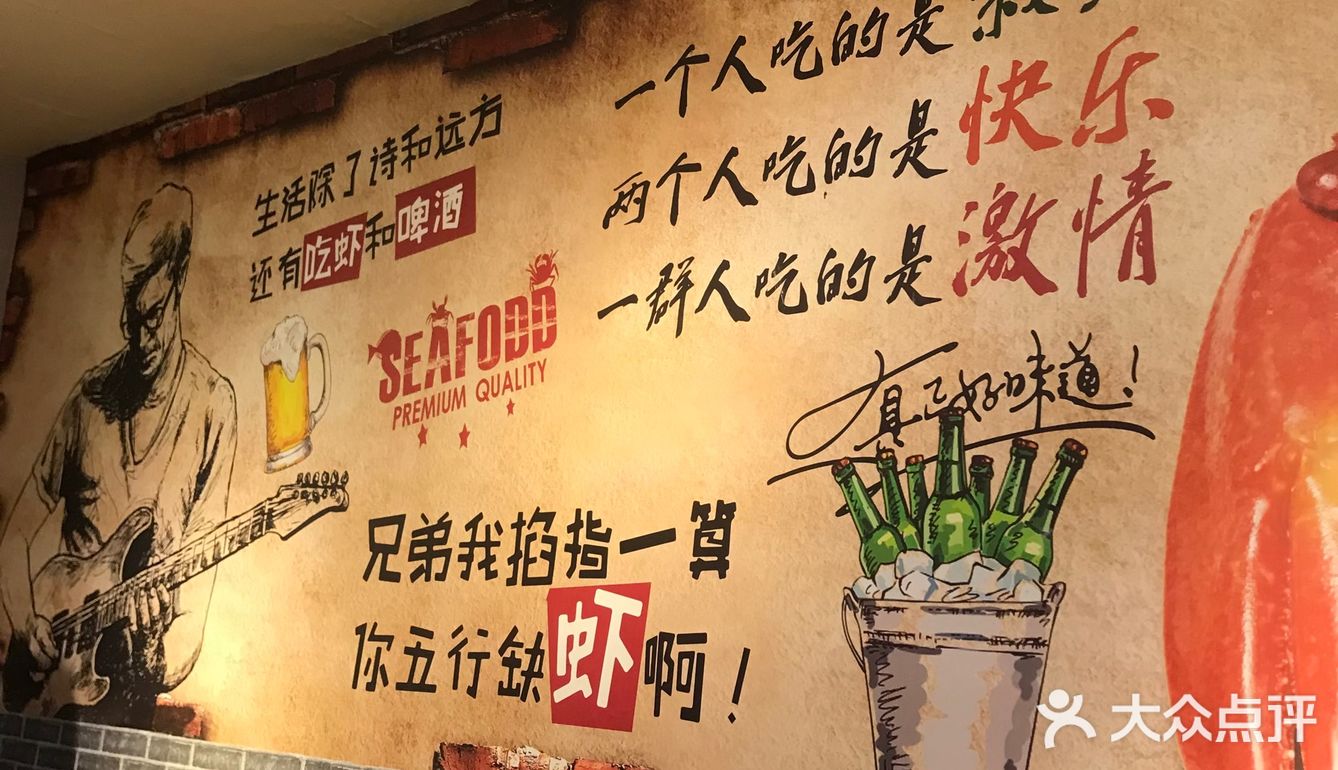 生活除了诗和远方
还有吃虾和啤酒
SEAFODD
PREMIUM QUALITY
一个人吃的是
两个人吃的是快乐
一群人吃的是激情
真正好味道！
兄弟我掐指一算
你五行缺虾啊！
大众点评